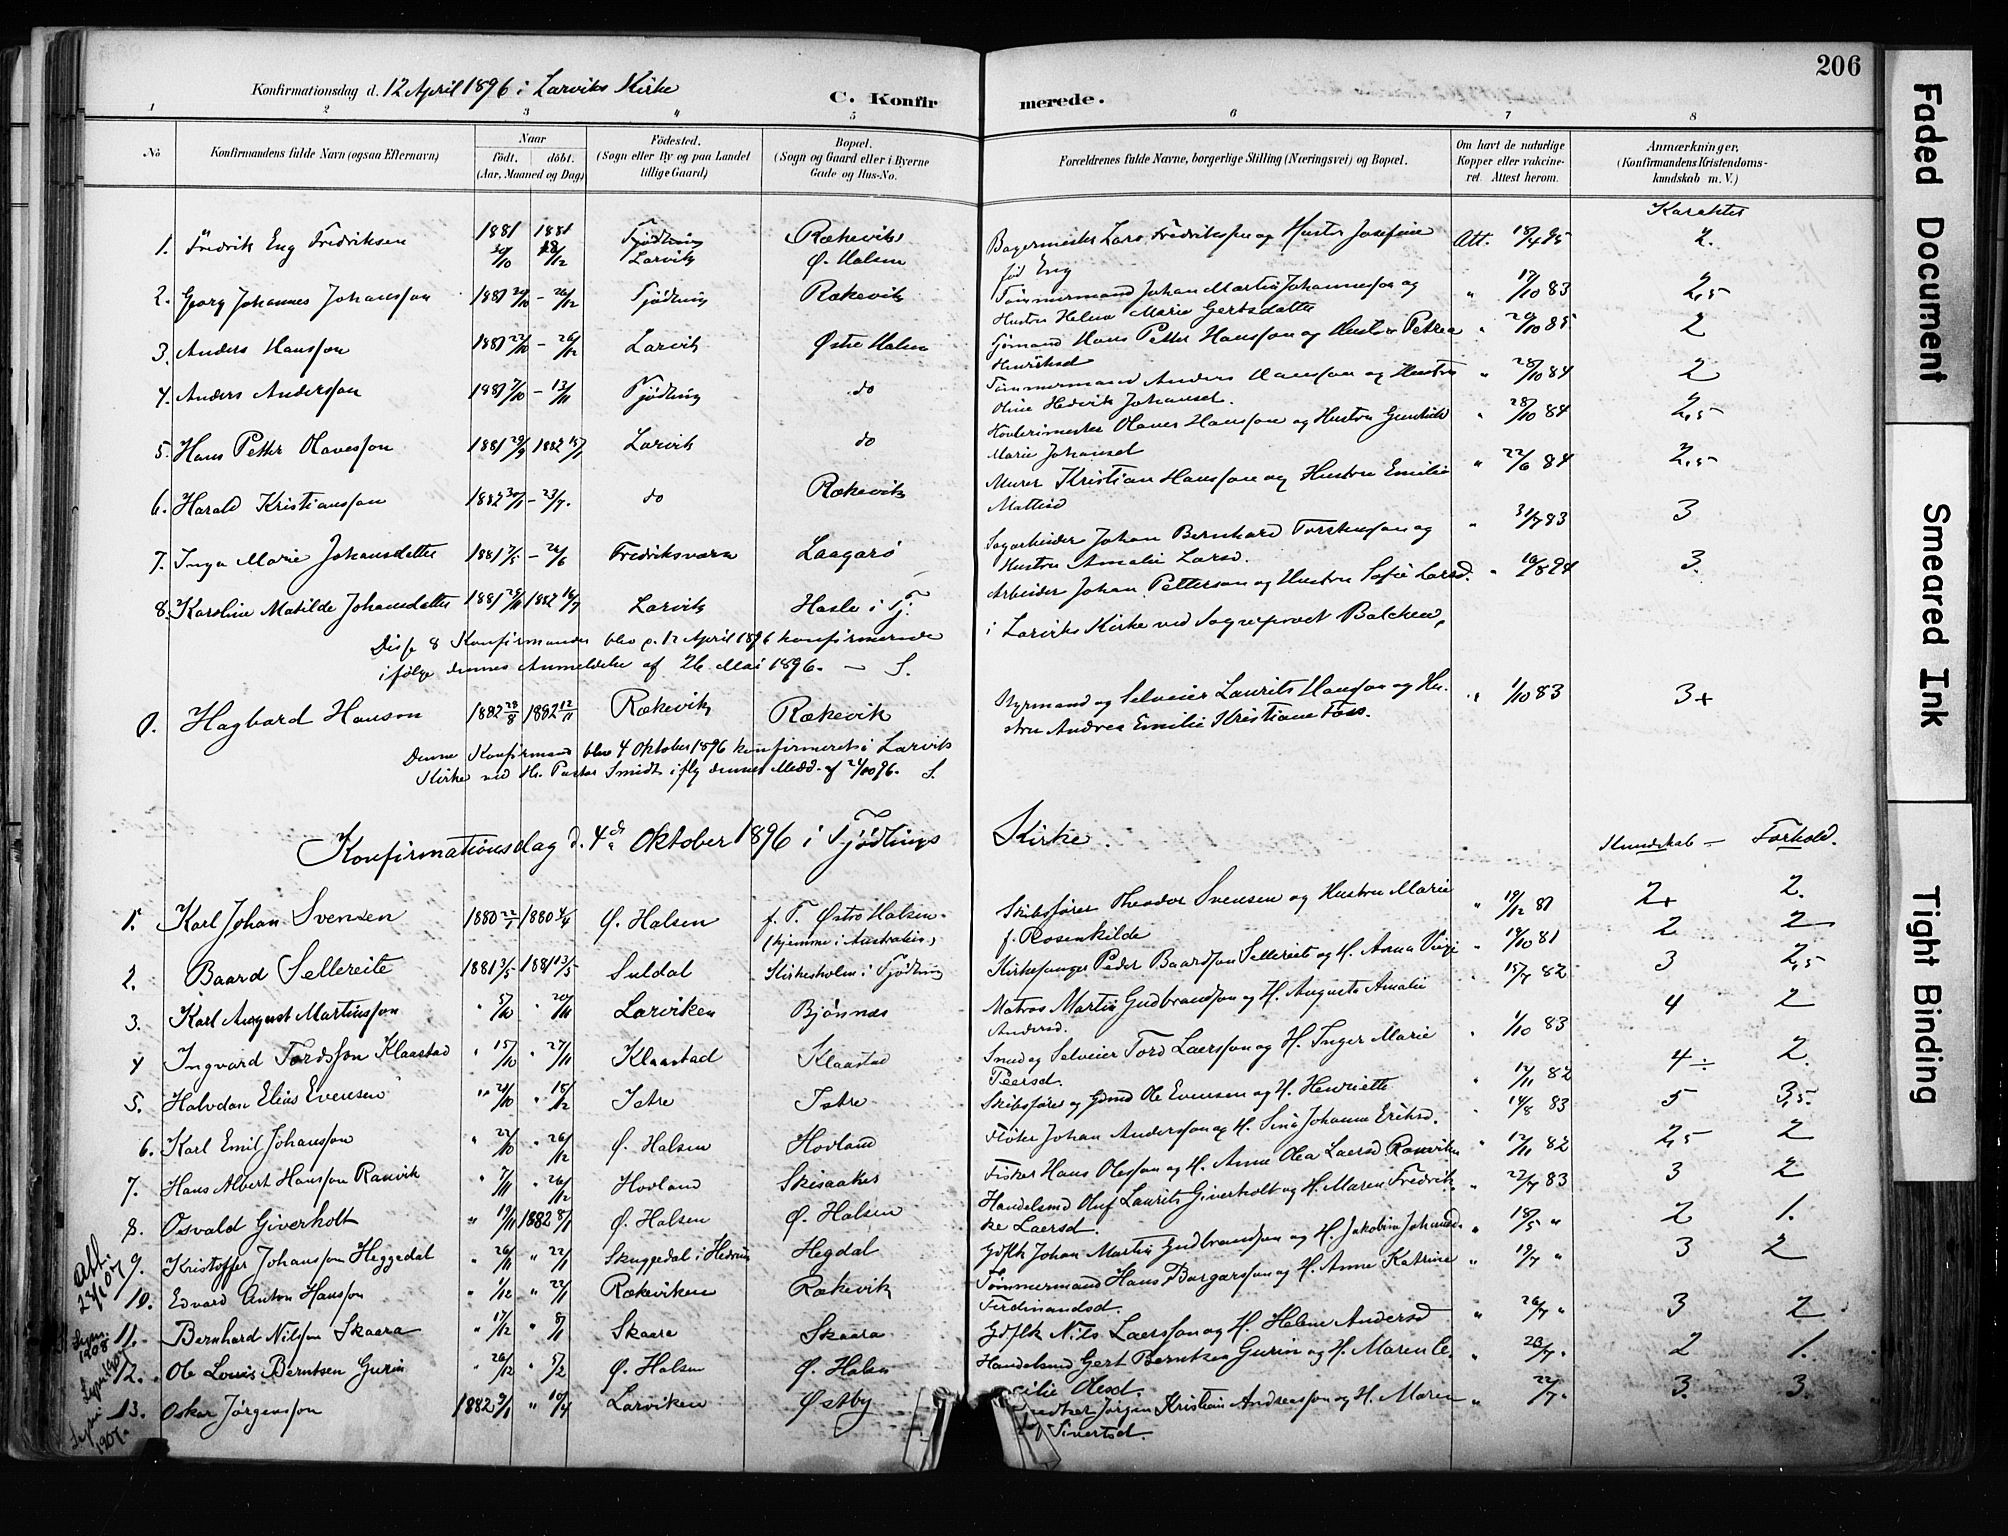 206
Konfirmationsdag d. 12 April 1896 i Larviks Kirke
C. Konfirmerede.
1 2 3 4 5 6 7 8
No
Konfirmandens fulde Navn (ogsaa Efternavn)
Naar
født. døbt.
(Aar, Maaned og Dag)
Fødested.
(Sogn eller By og paa Landet
tillige Gaard)
Bopæl.
(Sogn og Gaard eller i Byerne
Gade og Hus-No.
Forældrenes fulde Navne, borgerlige Stilling (Næringsvei) og Bopæl.
Om havt de naturlige
Kopper eller vakcine-
ret. Attest herom.
Anmærkninger.
(Konfirmandens Kristendoms-
kundskab m. V.)
Karakter
1. Fredrik Eng Fredriksen 1881 1881 Tjødling Larvik Rækevik Ø. Halsen Lars Fredriksen og Hustru Josefine Att. 2.
fød Eng
2. Georg Johannes Johansson 1881 Tjødling Rækevik Tømmermand Johan Martin Johannesson og " 83 2,5
Hustru Helene Marie Gertsdatter
3. Anders Hansson 1881 22/10 - 26/12 Larvik Østre Halsen Sjømand Hans Petter Hansson og Hustru Petrea " 85 2
Henriksd
4. Anders Andersson 1881 7/10 - 13/11 Tjødling do Tømmermand Anders Hansson og Hustru " 28/10 84 2
Oline Hedvik Johansd.
5. Hans Petter Olavesson 1881 29/9 1882 15/1 Larvik do Olaves Hansson og Hustru " 28/10 84 2,5
Marie Johansd
6. Harald Kristiansson 1882 - 23/7. do Rækevik Murer Kristian Hansson og Hustru Emilie " 22/6 84 2,5
7. Inga Marie Johansdatter 1881 7/5 - 26/6 Fredriksværn Laagarø Sagarbeider Johan Bernhard Torstensson og " 83 3
Hustru Amalie Larsd.
8. Karoline Matilde Johansdatter 1881 1882 16/7 Larvik Hasle i Tj. Arbeider Johan Petterson og Hustru Sofie Larsd. " 3.
Disse 8 Konfirmander blev d. 12 April 1896 konfirmerede i Larviks Kirke ved Sogneprovst Balchen,
ifølge dennes Anmeldelse af 26 Mai 1896. — S.
Hagbard Hanson 1882 28/8 1882 12/11 Rækevik Rækevik Styrmand og Selveier Laurits Hansson og Hu- " 1/10 83 3+
stru Andrea Emilie Kristiane Foss.
Denne Konfirmand blev 4 Oktober 1896 konfirmeret i Larviks
Kirke ved Hr. Pastor Smidt iflg dennes Medd. af 24/10 96. S.
Konfirmationsdag d. 4de Oktober 1896 i Tjødlings Kirke.
Kundskab - Forhold.
1. Karl Johan Svensen 1880 22/1 1880 4/4 Ø. Halsen f. T. Østre Halsen. Skibsfører Theodor Svensen og Hustru Marie " 19/12 81 2+ 2.
(hjemme i Australien) f. Rosenkilde
2. Baard Sellereite 1881 3/5 1881 13/5 Suldal Kirkesholm i Tjødling Kirkesanger Peder Baardson Sellereite og H. Anna " 81 2 2
3. Karl August Martinsson " 5/10 " 20/11 Larviken Bjønnes Matros Martin Gudbrandson og H. Augusta Amalie " 15/7 82 3 2,5
Andersd.
4 Ingvard Tordsson Klaastad " 15/10 " 27/11 Klaastad Klaastad Smed og Selveier Tord Laersson og H. Inger Marie " 1/10 83 4 2
Peersd.
5. Halvdan Elias Evensen " 24/10 " 18/12 Istre Istre Skibsfører og Gdmd Ole Evensen og H. Henriette " 82 4÷ 2.
6. Karl Emil Johansson " 22/10 " 26/12 Ø. Halsen Hovland Fløter Johan Andersson og H. Sina Johanne Eriksd. " 14/8 83 5 3,5.
7. Hans Albert Hansson Ranvik " 7/11 " 26/12 Hovland Skisaaker Fisker Hans Olesson og H. Anne Olea Laersd Ranviken " 12/11 82 2,5 2
8. Osvald Giverholt " 19/11 1882 8/1 Ø. Halsen Ø. Halsen Handelsmd Oluf Laurits Giverholt og H. Maren Fredrik- " 22/7 83 3 2
ke Laersd.
9. Kristoffer Johansson Heggedal " 26/11 " 22/1 Skuggedal i Hedrum Hegdal Gdflk Johan Martin Gudbrandson og H. Jakobine Johansd. " 18/5 " 2 1.
10. Edvard Anton Hansson " 1/12 " 22/1 Rækeviken Rækevik Tømmermand Hans Borgersson og H. Anne Katrine " 19/7 " 3 2
Ferdinandsd.
11. Bernhard Nilsson Skaara " 17/12 " 8/1 Skaara Skaara Gdflk Nils Laersson og H. Helene Andersd " 26/7 " 3 2
12. Ole Louis Berntsen Gurin " 26/12 " 5/2 Ø. Halsen Ø. Halsen Handelsmd Gert Berntsen Gurin og H. Maren Ce- " " 2 1.
cilie Olesd.
13. Oskar Jørgensson 1882 9/1 " 10/4 Larviken Østby Jørgen Kristian Andreasson og H. Maren " 22/7 " 3. 3.
Sivertsd.
Att.
1908
1907
1907.
Faded Document
Smeared Ink
Tight Binding